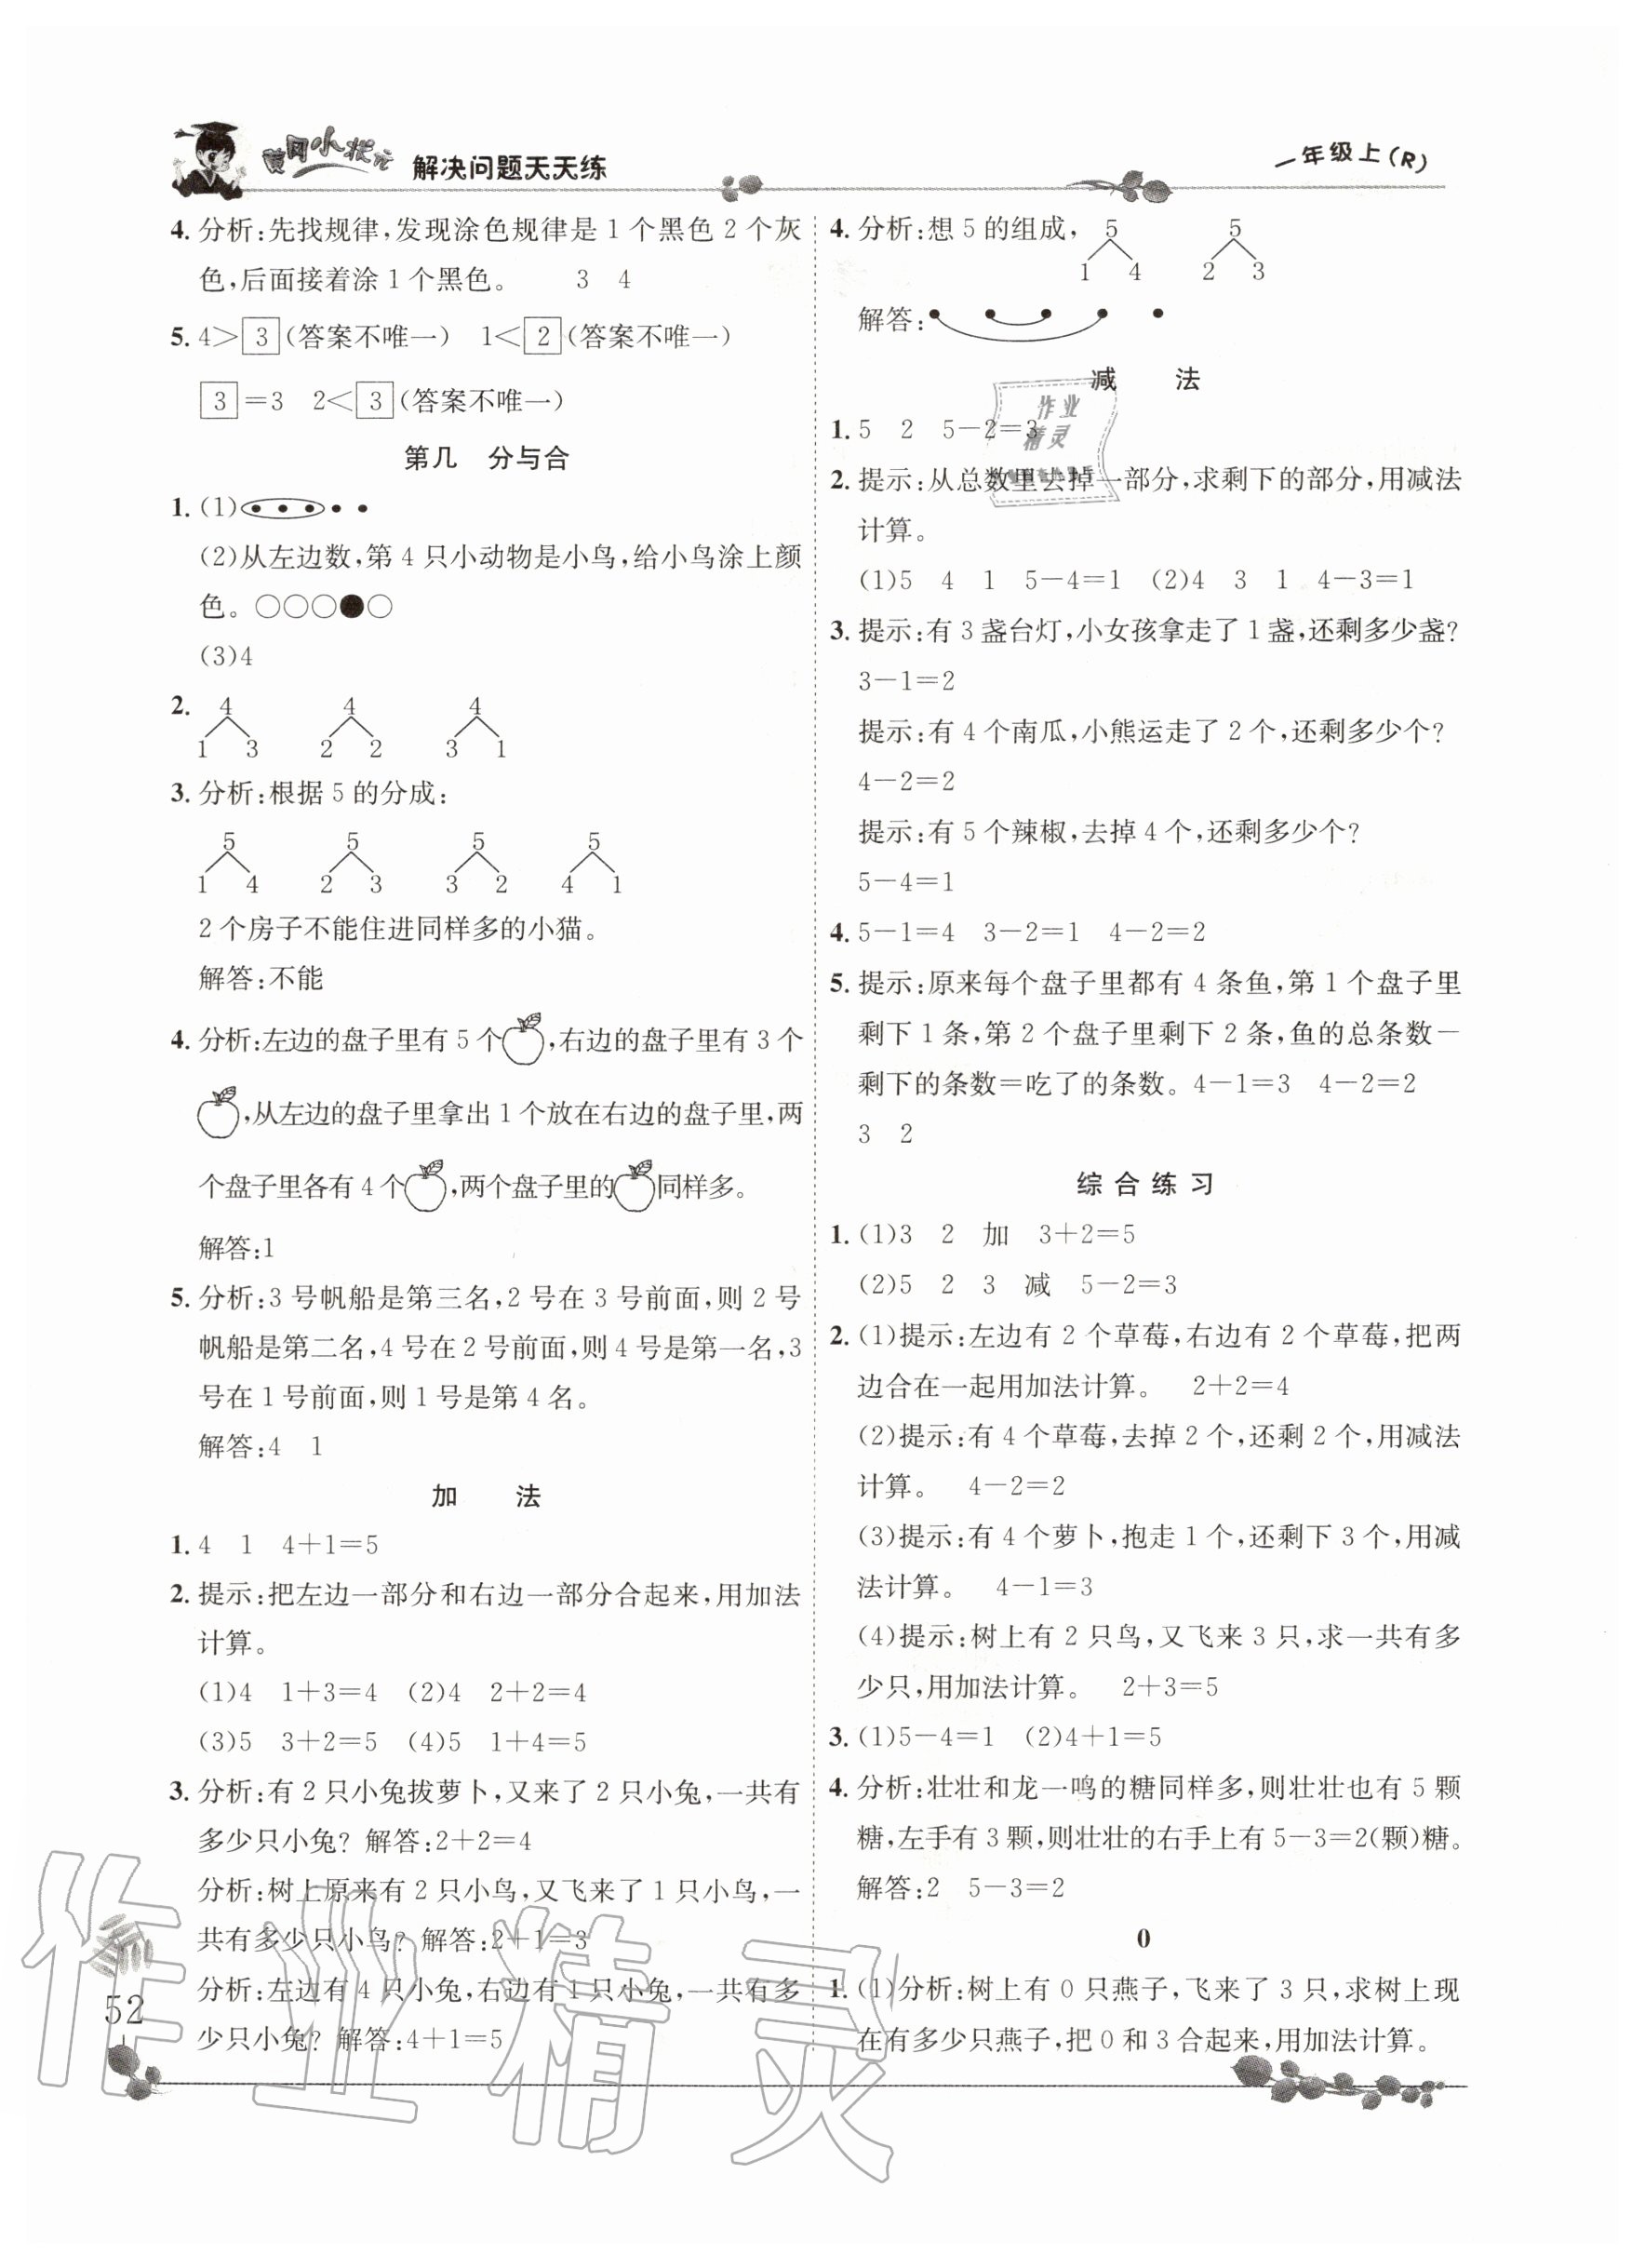 黄冈小状元 解决问题天天练
一年级上(R)
4. 分析:先找规律,发现涂色规律是1个黑色2个灰
色,后面接着涂1个黑色。 3 4
5. 4>3(答案不唯一) 1<2(答案不唯一)
3=3 2<3(答案不唯一)
第几 分与合
1. (1)
(2)从左边数,第4只小动物是小鸟,给小鸟涂上颜
色。○○○●○
(3)4
2. 4 4 4
1 3 2 2 3 1
3. 分析:根据5的分成:
5 5 5 5
1 4 2 3 3 2 4 1
2个房子不能住进同样多的小猫。
解答:不能
4. 分析:左边的盘子里有5个,右边的盘子里有3个
,从左边的盘子里拿出1个放在右边的盘子里,两
个盘子里各有4个,两个盘子里的同样多。
解答:1
5. 分析:3号帆船是第三名,2号在3号前面,则2号
帆船是第二名,4号在2号前面,则4号是第一名,3
号在1号前面,则1号是第4名。
解答:4 1
加 法
1. 4 1 4+1=5
2. 提示:把左边一部分和右边一部分合起来,用加法
计算。
(1)4 1+3=4 (2)4 2+2=4
(3)5 3+2=5 (4)5 1+4=5
3. 分析:有2只小兔拔萝卜,又来了2只小兔,一共有
多少只小兔? 解答:2+2=4
分析:树上原来有2只小鸟,又飞来了1只小鸟,一
共有多少只小鸟? 解答:2+1=3
分析:左边有4只小兔,右边有1只小兔,一共有多
少只小兔? 解答:4+1=5
52
4. 分析:想5的组成, 5 5
1 4 2 3
解答:
减 法
1. 5 2 5-2=3
2. 提示:从总数里去掉一部分,求剩下的部分,用减法
计算。
(1)5 4 1 5-4=1 (2)4 3 1 4-3=1
3. 提示:有3盏台灯,小女孩拿走了1盏,还剩多少盏?
3-1=2
提示:有4个南瓜,小熊运走了2个,还剩多少个?
4-2=2
提示:有5个辣椒,去掉4个,还剩多少个?
5-4=1
4. 5-1=4 3-2=1 4-2=2
5. 提示:原来每个盘子里都有4条鱼,第1个盘子里
剩下1条,第2个盘子里剩下2条,鱼的总条数-
剩下的条数=吃了的条数。4-1=3 4-2=2
3 2
综合练习
1. (1)3 2 加 3+2=5
(2)5 2 3 减 5-2=3
2. (1)提示:左边有2个草莓,右边有2个草莓,把两
边合在一起用加法计算。 2+2=4
(2)提示:有4个草莓,去掉2个,还剩2个,用减法
计算。 4-2=2
(3)提示:有4个萝卜,抱走1个,还剩下3个,用减
法计算。 4-1=3
(4)提示:树上有2只鸟,又飞来3只,求一共有多
少只,用加法计算。 2+3=5
3. (1)5-4=1 (2)4+1=5
4. 分析:壮壮和龙一鸣的糖同样多,则壮壮也有5颗
糖,左手有3颗,则壮壮的右手上有5-3=2(颗)糖。
解答:2 5-3=2
0
1. (1)分析:树上有0只燕子,飞来了3只,求树上现
在有多少只燕子,把0和3合起来,用加法计算。
作业
精灵
作业精灵